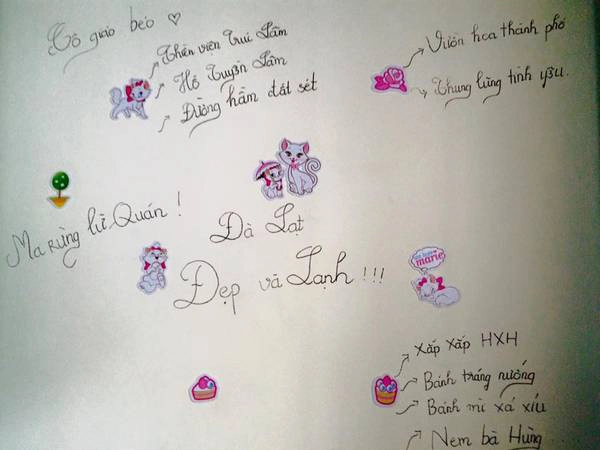 Cô giáo béo ♡
Thiền viện Trúc Lâm
Hồ Tuyền Lâm
Đường hầm đất sét
Vườn hoa thành phố
Thung lũng tình yêu.
Ma rừng lữ Quán !
Đà Lạt
Đẹp và Lạnh !!!
marie
Xắp Xắp HXH
Bánh tráng nướng
Bánh mì xá xíu
Nem bà Hùng